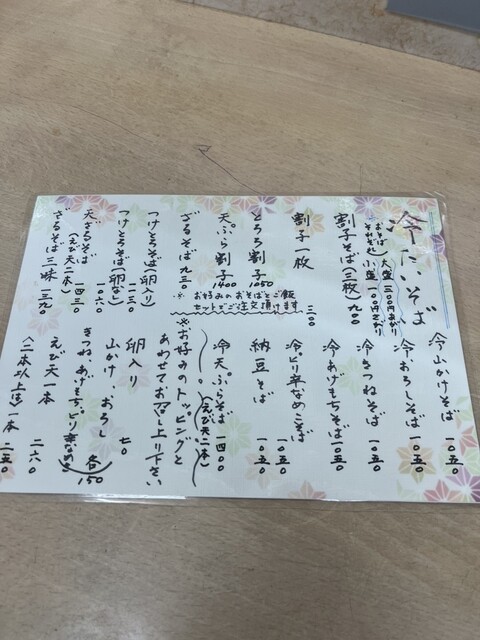 冷たいそば
おそば 大盛 三〇〇円あがり
それぞれ 小盛 一〇〇円さがり
割子そば(三枚) 九〇〇
割子一枚 三〇〇
とろろ割子 1050
天ぷら割子 1400
ざるそば 九三〇
つけとろそば(卵入り) 一一三〇
つけとろそば(卵なし) 一〇六〇
天ざるそば 一四三〇
(えび天二本)
ざるそば三昧 一三九〇
※ お好みのおそばとご飯
セットでご注文頂けます
冷山かけそば 一〇五〇
冷おろしそば 一〇五〇
冷きつねそば 一〇五〇
冷あげもちそば 一〇五〇
冷ピリ辛なめこそば 一〇五〇
納豆そば 一〇五〇
冷天ぷらそば 一四〇〇
(えび天二本)
※お好みのトッピングと
あわせてお召し上り下さい
卵入り 七〇
山かけ おろし
きつね、あげもち、ピリ辛なめこ 各150
えび天一本 二六〇
(二本以上は一本 二五〇